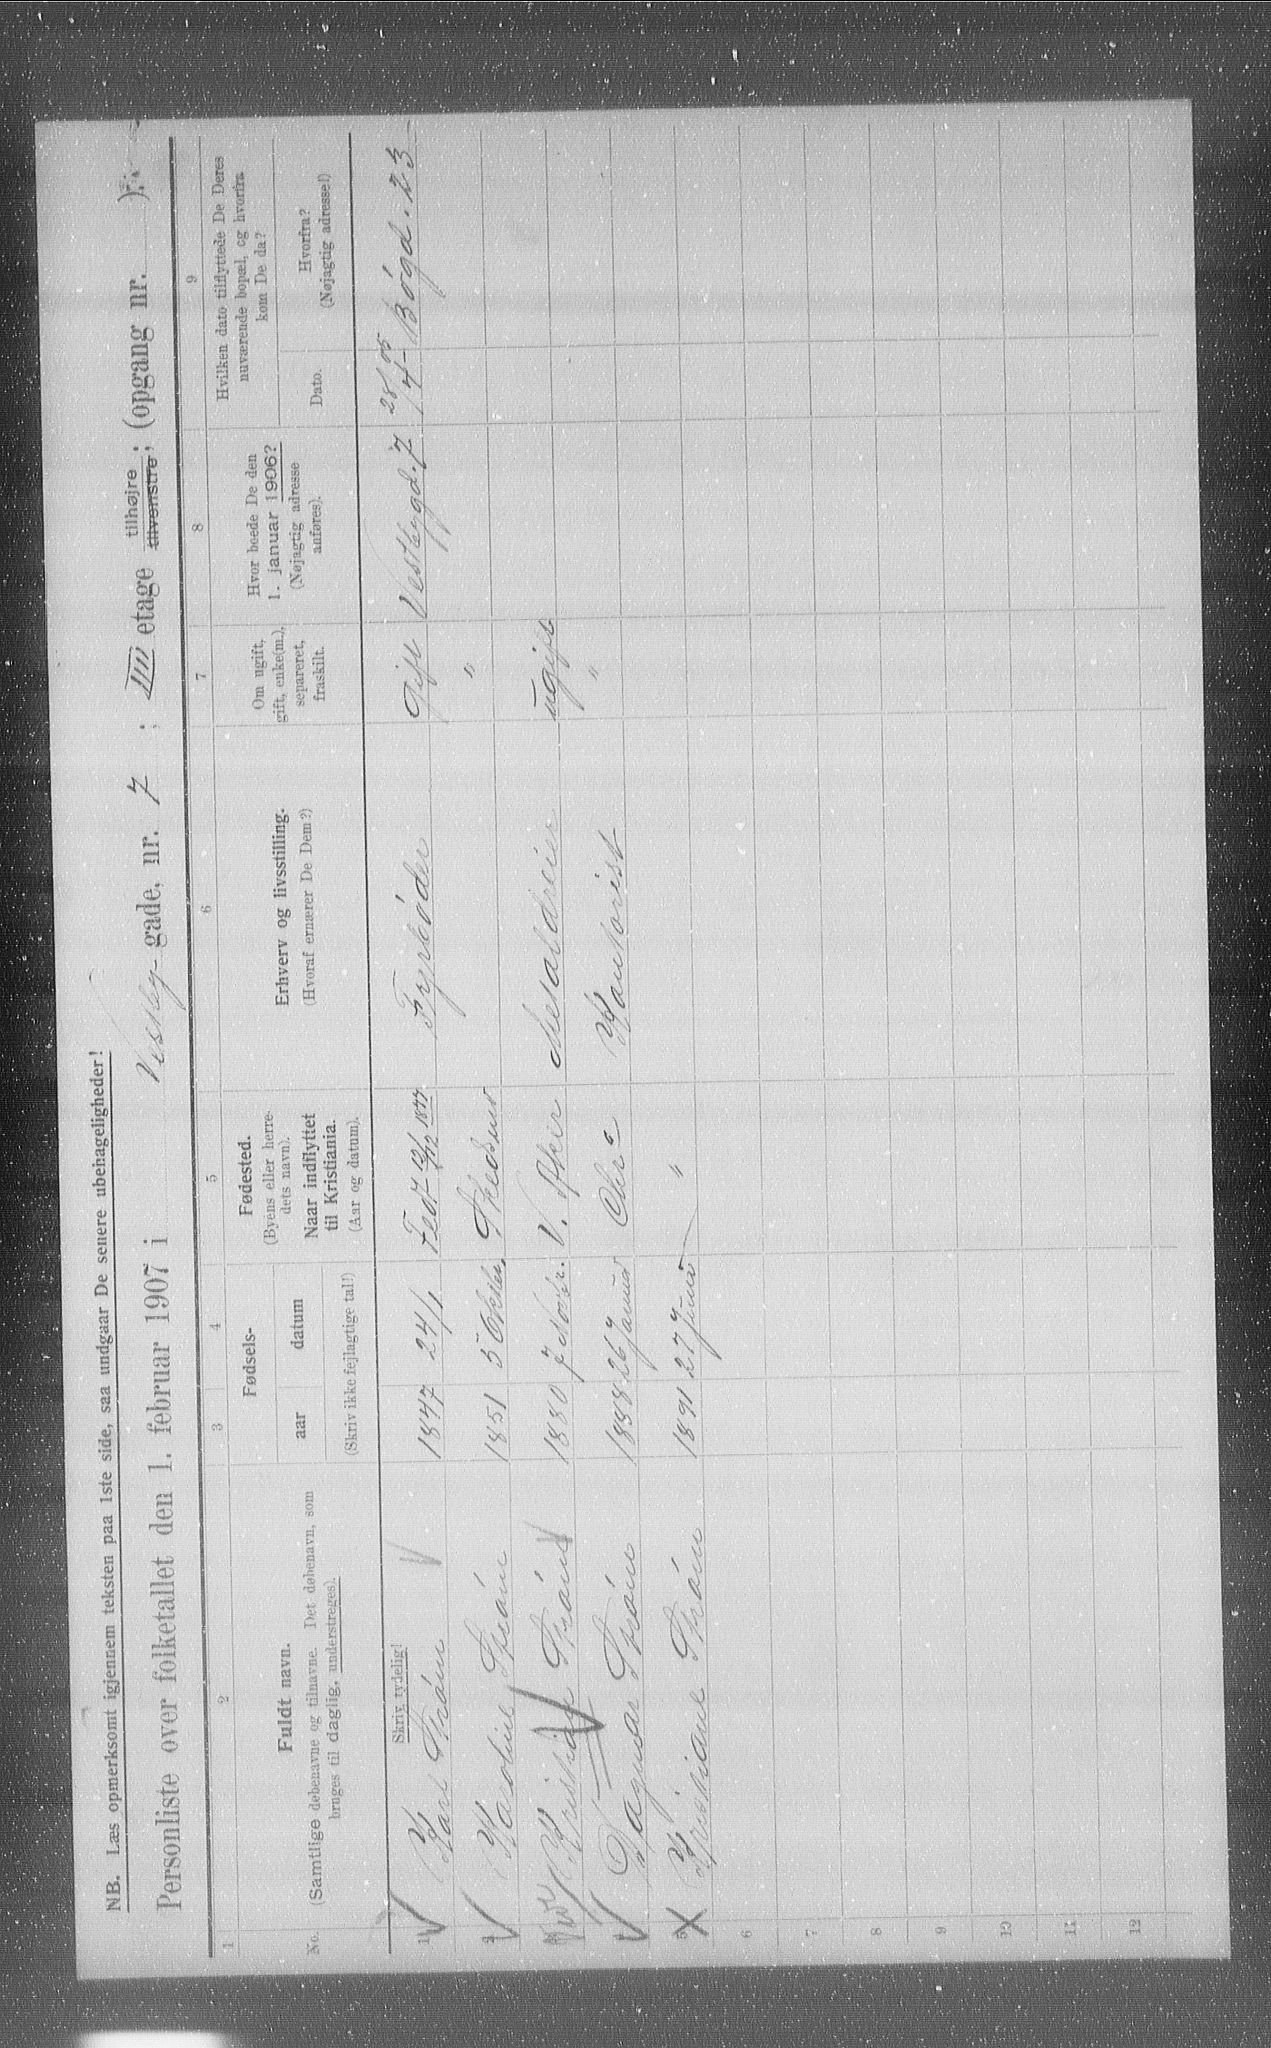 NB. Læs opmerksomt igjennem teksten paa 1ste side, saa undgaar De senere ubehageligheder!
Personliste over folketallet den 1. februar 1907 i Vestby-gade, nr. 7 ; IIII etage tilhøjre ; (opgang nr. ).
tilvenstre;
1 2 3 4 5 6 7 8 9
No.
Fuldt navn.
(Samtlige døbenavne og tilnavne. Det døbenavn, som
bruges til daglig, understreges).
Fødsels-
aar datum
(Skriv ikke fejlagtige tal!)
Fødested.
(Byens eller herre-
dets navn).
Naar indflyttet
til Kristiania.
(Aar og datum).
Erhverv og livsstilling.
(Hvoraf ernærer De Dem?)
Om ugift,
gift, enke(m.),
separeret,
fraskilt.
Hvor boede De den
1. januar 1906?
(Nøjagtig adresse
anføres).
Hvilken dato tilflyttede De Deres
nuværende bopæl, og hvorfra
kom De da?
Dato.
Hvorfra?
(Nøjagtig adresse!)
Skriv tydelig!
1 Karl Strøm 1847 24/1 12/12 1877 Fyrbøder Gift Vestbygd. 7 28/4-05 Bøgd. 23
2 Karoline Strøm 1851 5 Oktbr. "
3 Kristian Strøm 1880 7 Novbr. V. Aker Metaldreier ugift
4 Dagmar Strøm 1888 26 Chra Kontorist "
5 Kristiane Strøm 1891 27 "
6
7
8
9
10
11
12